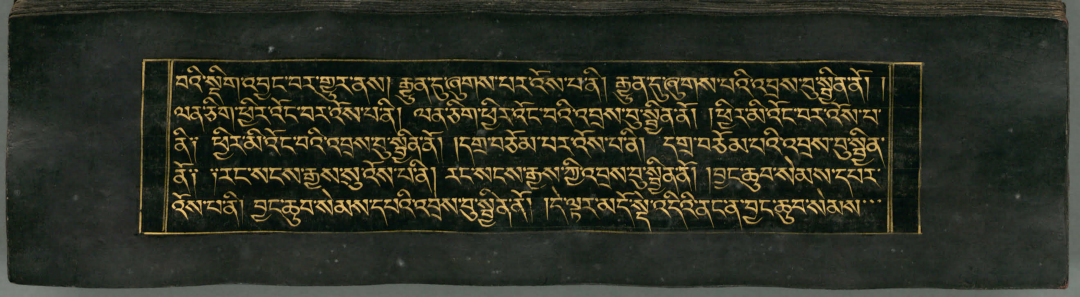 བའི་སྡིག་འབྱང་བར་གྱུར་ནས། རྒྱུན་དུ་ཞུགས་པར་འོས་པ་ནི། རྒྱུན་དུ་ཞུགས་པའི་འབྲས་བུ་སྦྱིན་ནོ། །
ལན་ཅིག་ཕྱིར་འོང་བར་འོས་པ་ནི། ལན་ཅིག་ཕྱིར་འོང་བའི་འབྲས་བུ་སྦྱིན་ནོ། །ཕྱིར་མི་འོང་བར་འོས་པ་
ནི། ཕྱིར་མི་འོང་བའི་འབྲས་བུ་སྦྱིན་ནོ། །དགྲ་བཅོམ་པར་འོས་པ་ནི། དགྲ་བཅོམ་པའི་འབྲས་བུ་སྦྱིན་
ནོ། །རང་སངས་རྒྱས་སུ་འོས་པ་ནི། རང་སངས་རྒྱས་ཀྱི་འབྲས་བུ་སྦྱིན་ནོ། །བྱང་ཆུབ་སེམས་དཔར་
འོས་པ་ནི། བྱང་ཆུབ་སེམས་དཔའི་འབྲས་བུ་སྦྱིན་ནོ། །དེ་ལྟར་མདོ་སྡེ་འདིའི་ནང་ན་བྱང་ཆུབ་སེམས་